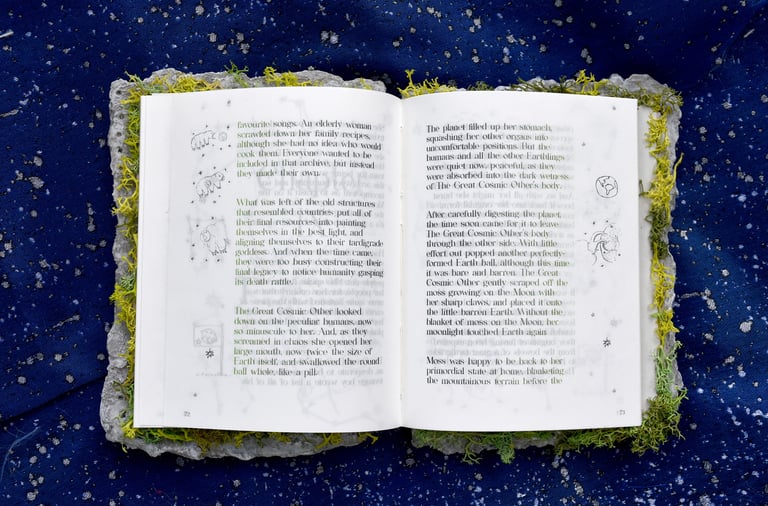 favourite songs. An elderly woman
scrawled down her family recipes,
although she had no idea who would
cook them. Everyone wanted to be
included in that archive, but instead
they made their own.
What was left of the old structures
that resembled countries put all of
their final resources into painting
themselves in the best light, and
aligning themselves to their tardigrade
goddess. And when the time came,
they were too busy constructing their
final legacy to notice humanity gasping
its death rattle.
The Great Cosmic Other looked
down on the peculiar humans, now
so minuscule to her. And, as they
screamed in chaos she opened her
large mouth, now twice the size of
Earth itself, and swallowed the round
ball whole, like a pill.
22
The planet filled up her stomach,
squashing her other organs into
uncomfortable positions. But the
humans and all the other Earthlings
were quiet now, peaceful, as they
were absorbed into the dark wetness
of The Great Cosmic Other's body.
After carefully digesting the planet,
the time soon came for it to leave
The Great Cosmic Other's body
through the other side. With little
effort out popped another perfectly
formed Earth ball, although this time
it was bare and barren. The Great
Cosmic Other gently scraped off the
moss growing on the Moon with
her sharp claws, and placed it onto
the little barren Earth. Without the
blanket of moss on the Moon, her
moonlight touched Earth again.
Moss was happy to be back to her
primordial state at home, blanketing
the mountainous terrain before the
23